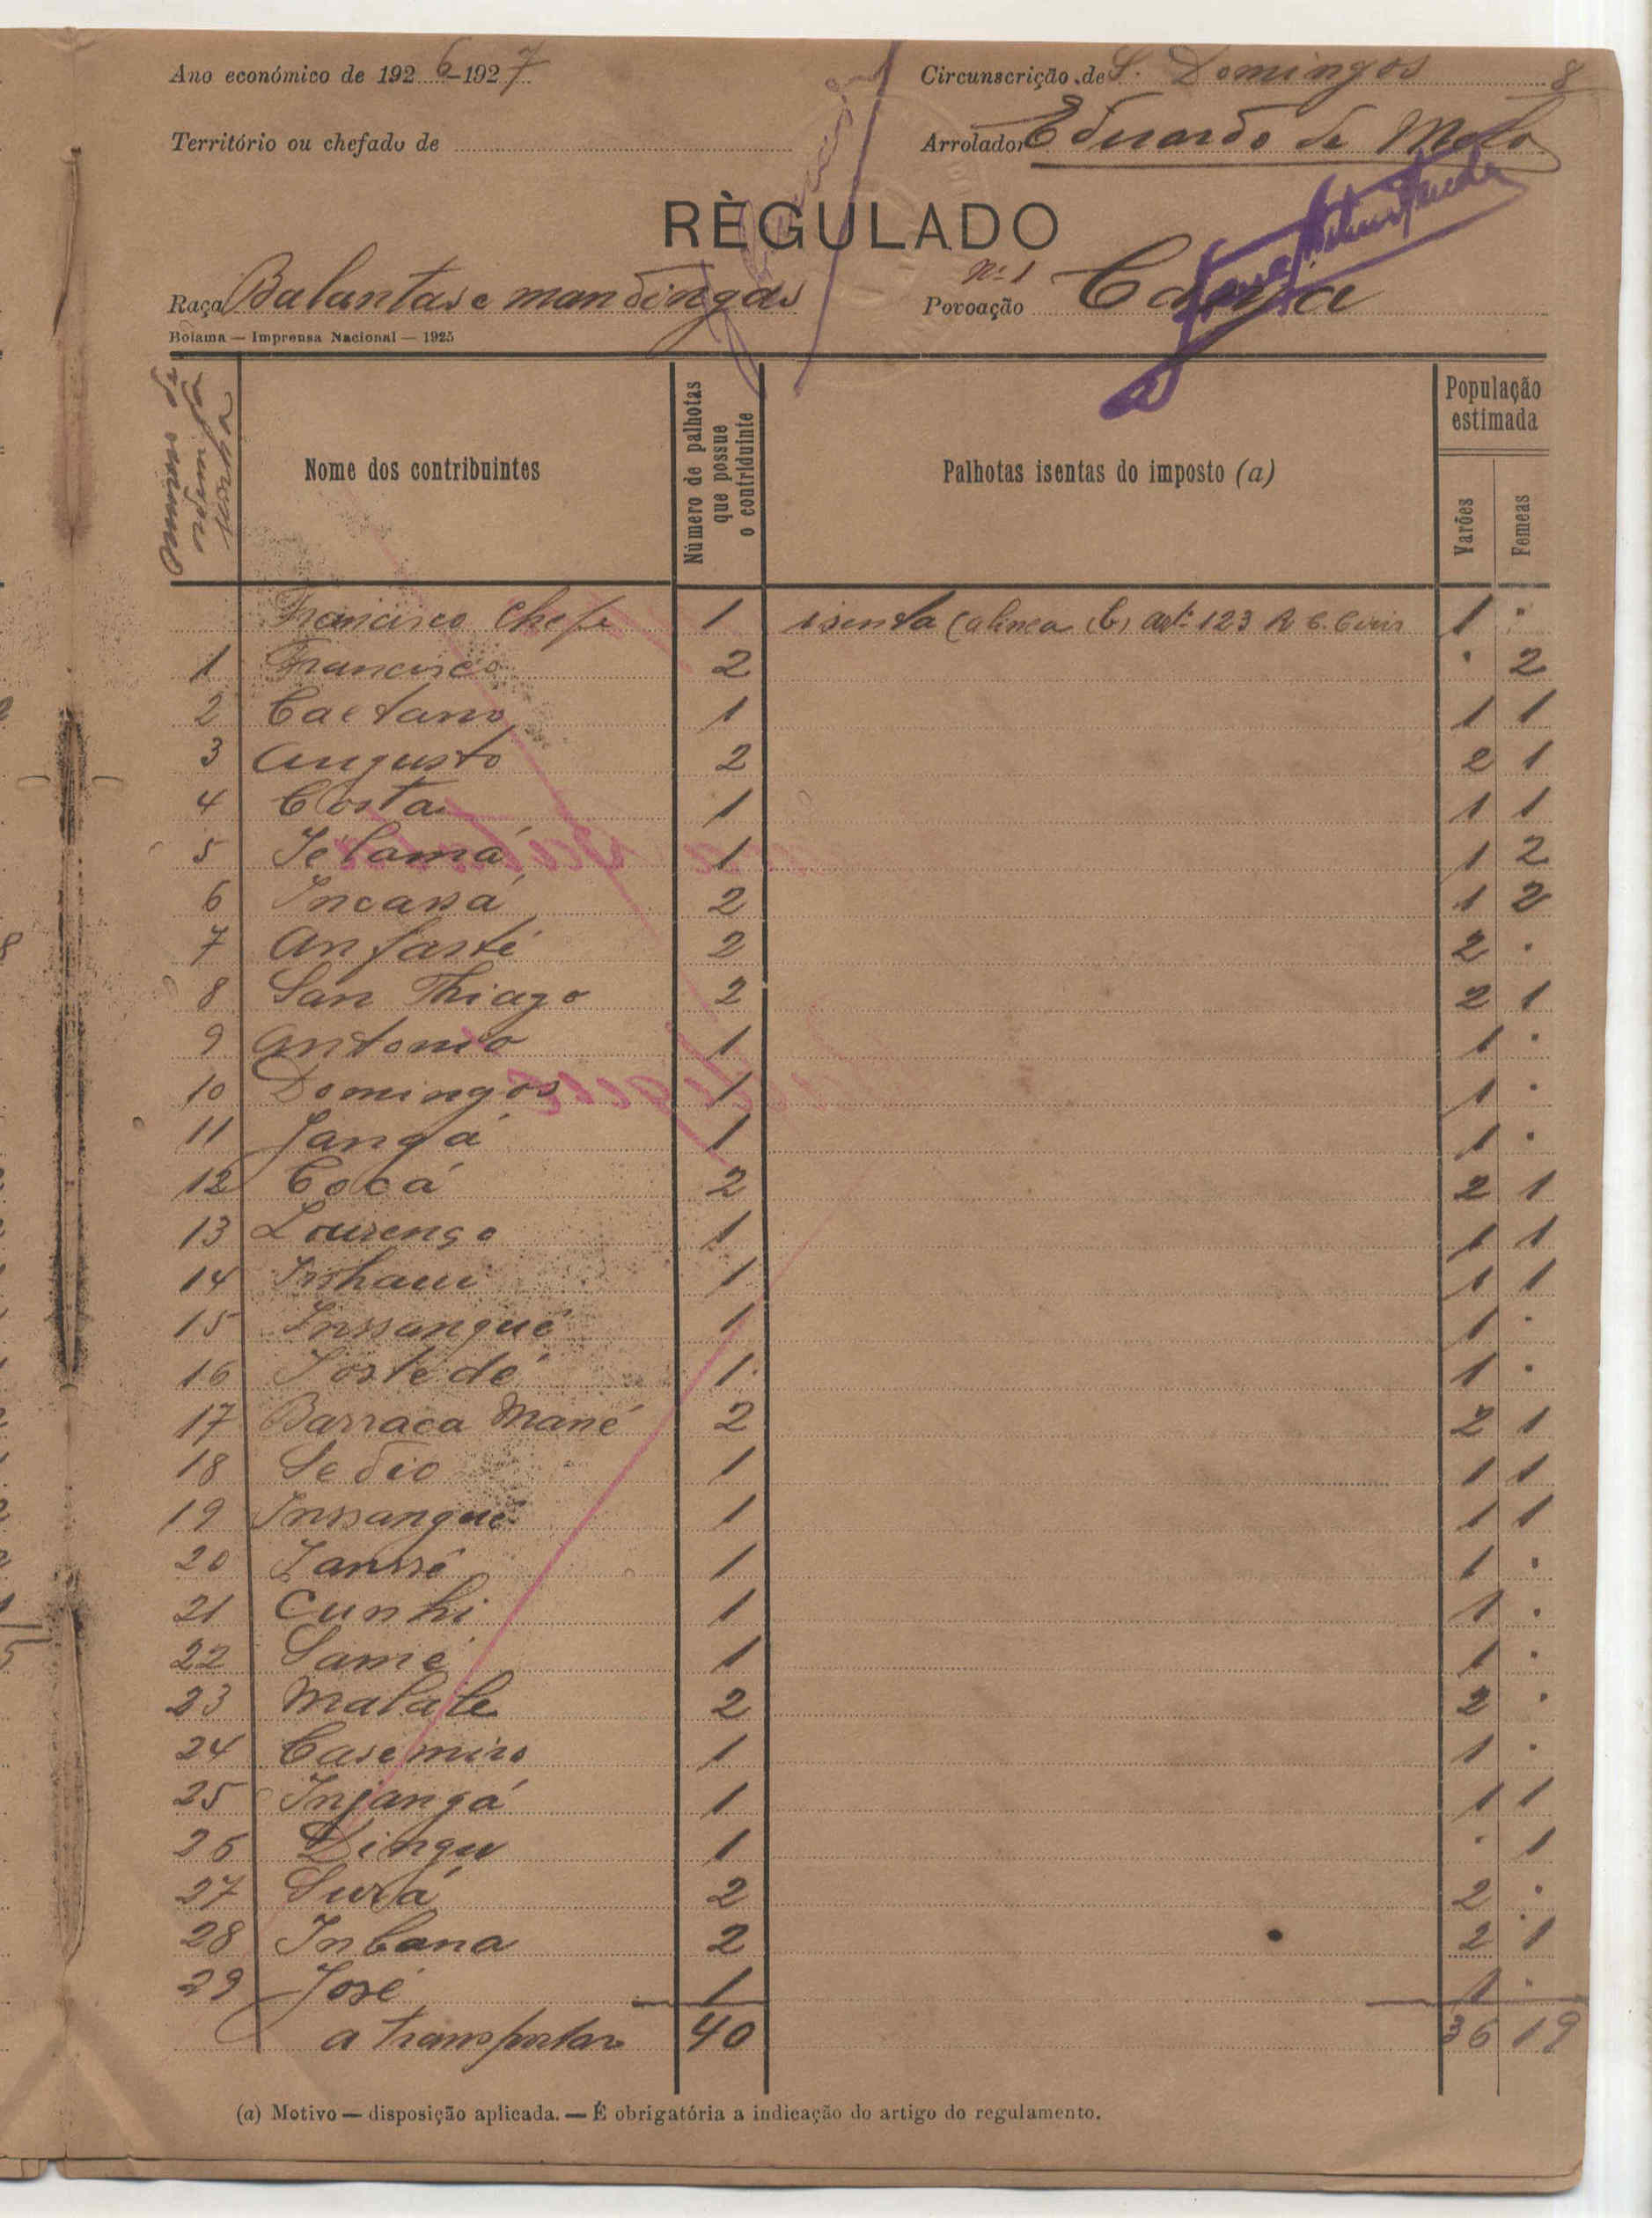 Ano económico de 1926-1927
Circunscrição de S. Domingos 8
Território ou chefado de
Arrolador Eduardo de Melo
RÈGULADO
Raça Balantas e mandingas
Nº 1
Povoação
Bolama — Imprensa Nacional — 1925
Nome dos contribuintes
Número de palhotas que possue o contriduinte
Palhotas isentas do imposto (a)
População estimada
Varões
Femeas
Francisco Chefe 1 isenta (alinea (b) artº 123 R C. Civis 1 "
1 Francisco 2 " 2
2 Caetano 1 1 1
3 Augusto 2 2 1
4 Costa 1 1 1
5 Jelamá 1 1 2
6 Incassá 2 1 2
7 Anfasté 2 2 "
8 San Thiago 2 2 1
9 Antonio 1 1 "
10 Domingos 1 1 "
11 Jangá 1 1 "
12 Cocá 2 2 1
13 Lourenço 1 1 1
14 1 1 1
15 Inssangué 1 1 "
16 1 1 "
17 Barraca Mané 2 2 1
18 Sedio 1 1 1
19 Inssangué 1 1 1
20 1 1 "
21 Cunhi 1 1 "
22 Samé 1 1 "
23 Malafe 2 2 "
24 Casemiro 1 1 "
25 Injangá 1 1 1
26 Dingu 1 " 1
27 Surá 2 2 "
28 Inbana 2 2 1
29 José 1 1 "
a transportar 40 36 19
(a) Motivo — disposição aplicada. — É obrigatória a indicação do artigo do regulamento.